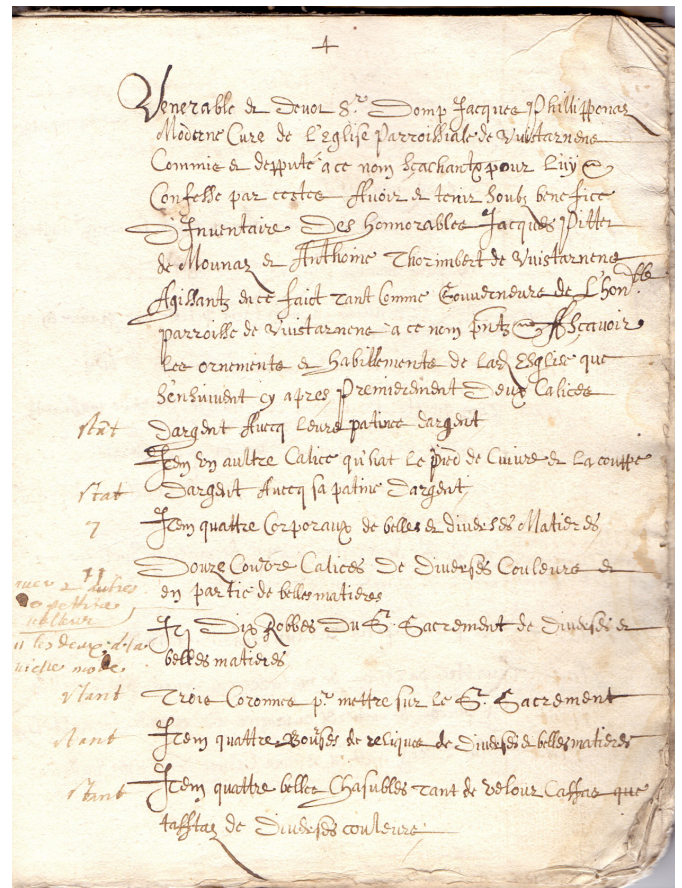 4
Venerable et devot Sr. Domp Jacques Phillipponaz
Moderne Cure de l'Eglise Parroissiale de Vuistarnens
Commis et depputé a ce nom sçachantz pour luy
Confesse par cestes Avoir et tenir soubz benefice
D'Inventaire Des honnorables Jacques Pittet
de Mounaz et Anthoine Thorimbert de Vuistarnens
Agissantz en ce faict tant comme Gouverneurs de L'honble
parroisse de Vuistarnens a ce nom pntz A Sçavoir
Les ornements et habillements de lad Esglise que
s'ensuivent cy apres Premierement Deux Calices
stat dargent Avecq leurs patines dargent
Item un aultre Calice qu'hat le pied de Cuivre et la couppe
stat Dargent Avecq sa patine Dargent
7 Item quattre Corporaux de belles et diverses Matieres
11 Douze Couvre Calices De Diverses Couleurs et
en partie de belles matieres
It Dix Robbes Du St. Sacrement de diverses et
belles matieres
stant Trois Coronnes pr mettre sur le St. Sacrement
stant Item quattre Bourses de reliques de Diverses et belles matieres
stant Item quattre belles Chasubles tant de velour Caffas que
tafftaz de Diverses couleurs